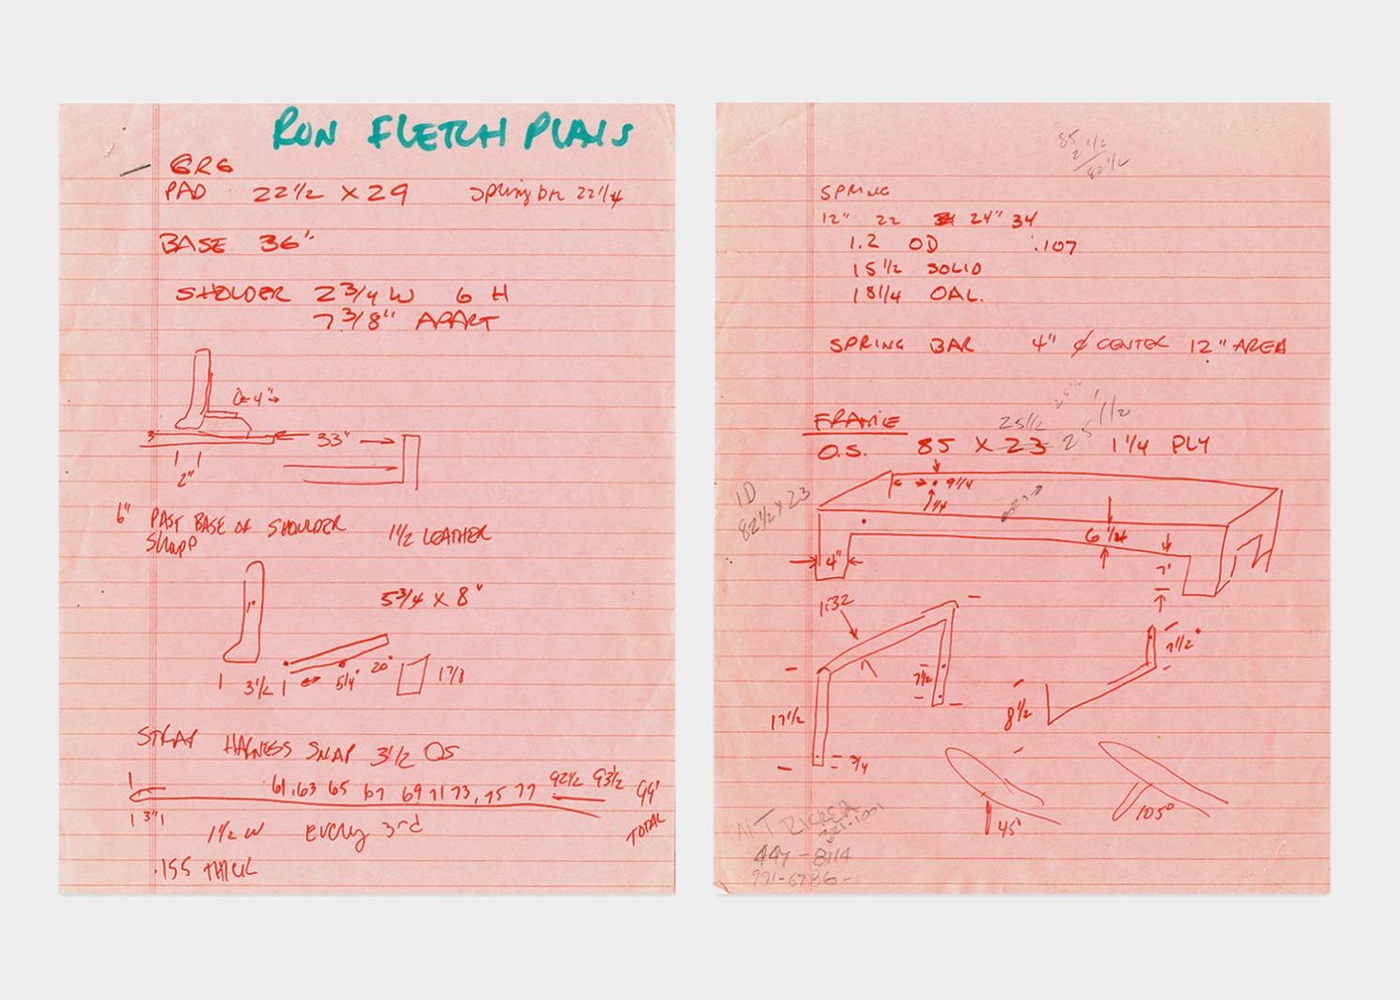 RON FLETCH PLANS
GRG
PAD 22 1/2 X 29 Spring bar 22 1/4
BASE 36"
SHOLDER 2 3/4 W 6 H
7 3/8" APART
4"
33"
2"
6" PAST BASE OF SHOULDER 1 1/2 LEATHER
1"
5 3/4 X 8"
3 1/2 5 1/4 20° 1 7/8
STRAP HARNESS SNAP 3 1/2 OS
61, 63 65 67 69 71 73, 75 77 92 1/2 93 1/2 99"
3" TOTAL
1 1/2 W EVERY 3rd
.155 THICK
85
2 1/2
82 1/2
SPRING
12" 22 24" 34
1.2 OD .107
15 1/2 SOLID
18 1/4 OAL.
SPRING BAR 4" ¢ CENTER 12" AREA
FRAME 25 1/2
O.S. 85 X 23 25 1/2 1 1/4 PLY
9 1/4
ID
82 1/2 x 23
6 1/4
4"
7"
1.32
7 1/2"
7 1/2
17 1/2 8 1/2
3/4
45° 105°
447-8114
991-6786-